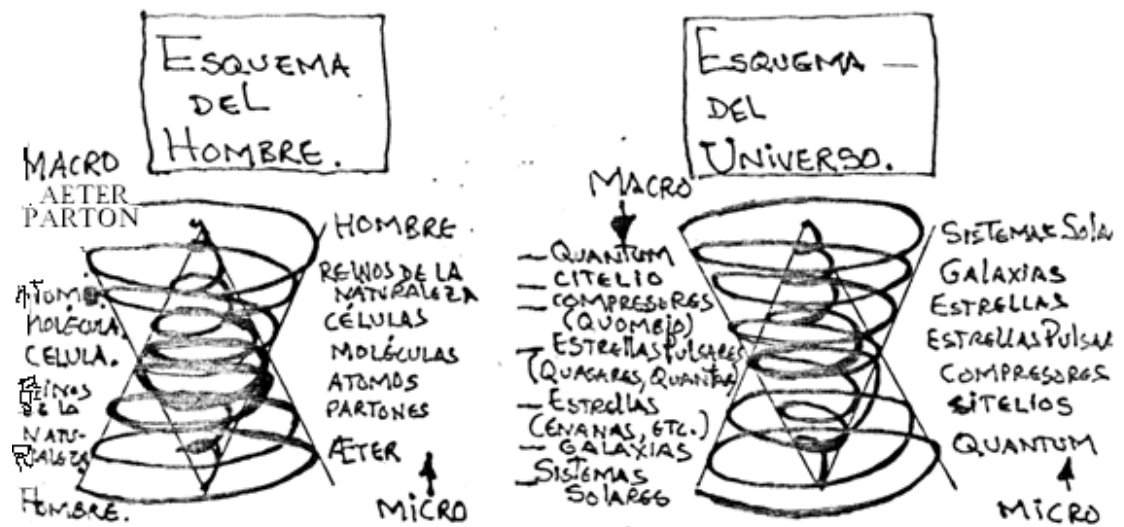 ESQUEMA
DEL
HOMBRE.
MACRO
AETER
PARTON
ATOMO.
MOLÉCULA.
CELULA.
REINOS
DE LA
NATU-
RALEZA
HOMBRE.
HOMBRE
REINOS DE LA
NATURALEZA
CÉLULAS
MOLÉCULAS
ATOMOS
PARTONES
ÆTER
MICRO
ESQUEMA —
DEL
UNIVERSO.
MACRO
— QUANTUM
— CITELIO
— COMPRESORES
(QUOMBIO)
— ESTRELLAS PULSARES
(QUASARES, QUANTAR)
— ESTRELLAS
(ENANAS, ETC.)
— GALAXIAS
— SISTEMAS
SOLARES
SISTEMAS SOLA
GALAXIAS
ESTRELLAS
ESTRELLAS PULSAR
COMPRESORES
SITELIOS
QUANTUM
MICRO